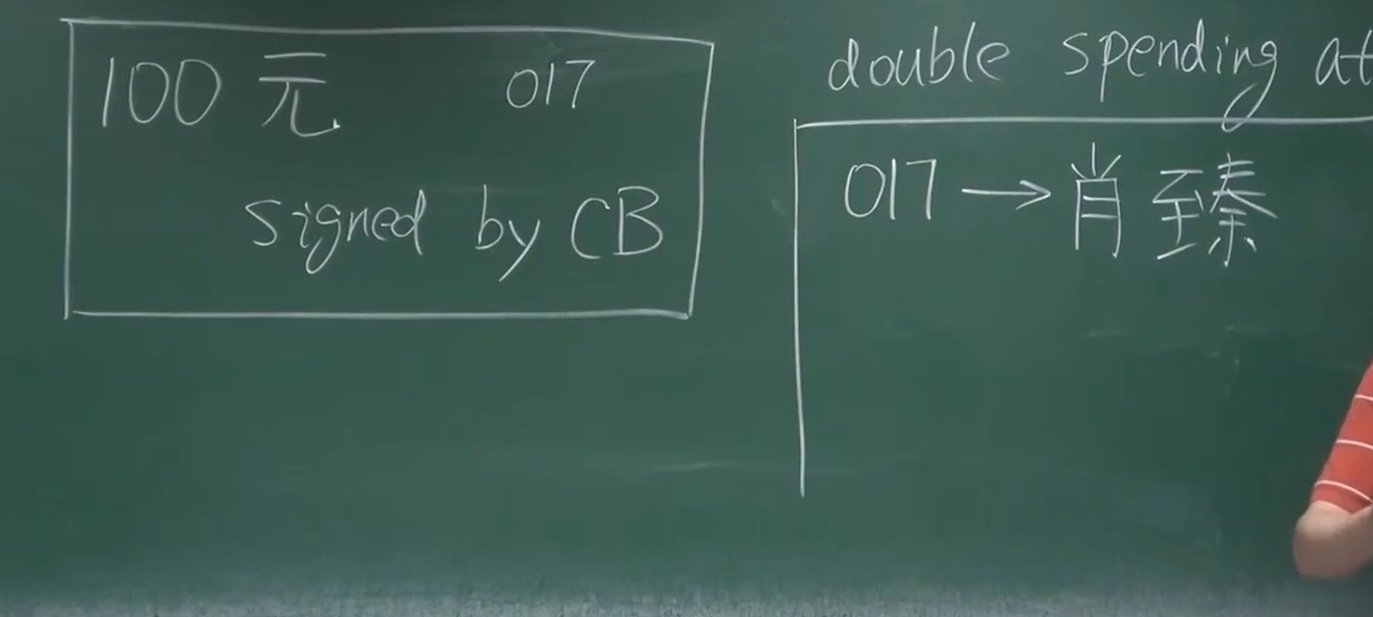 100 元 017
signed by CB
double spending at
017 → 肖臻